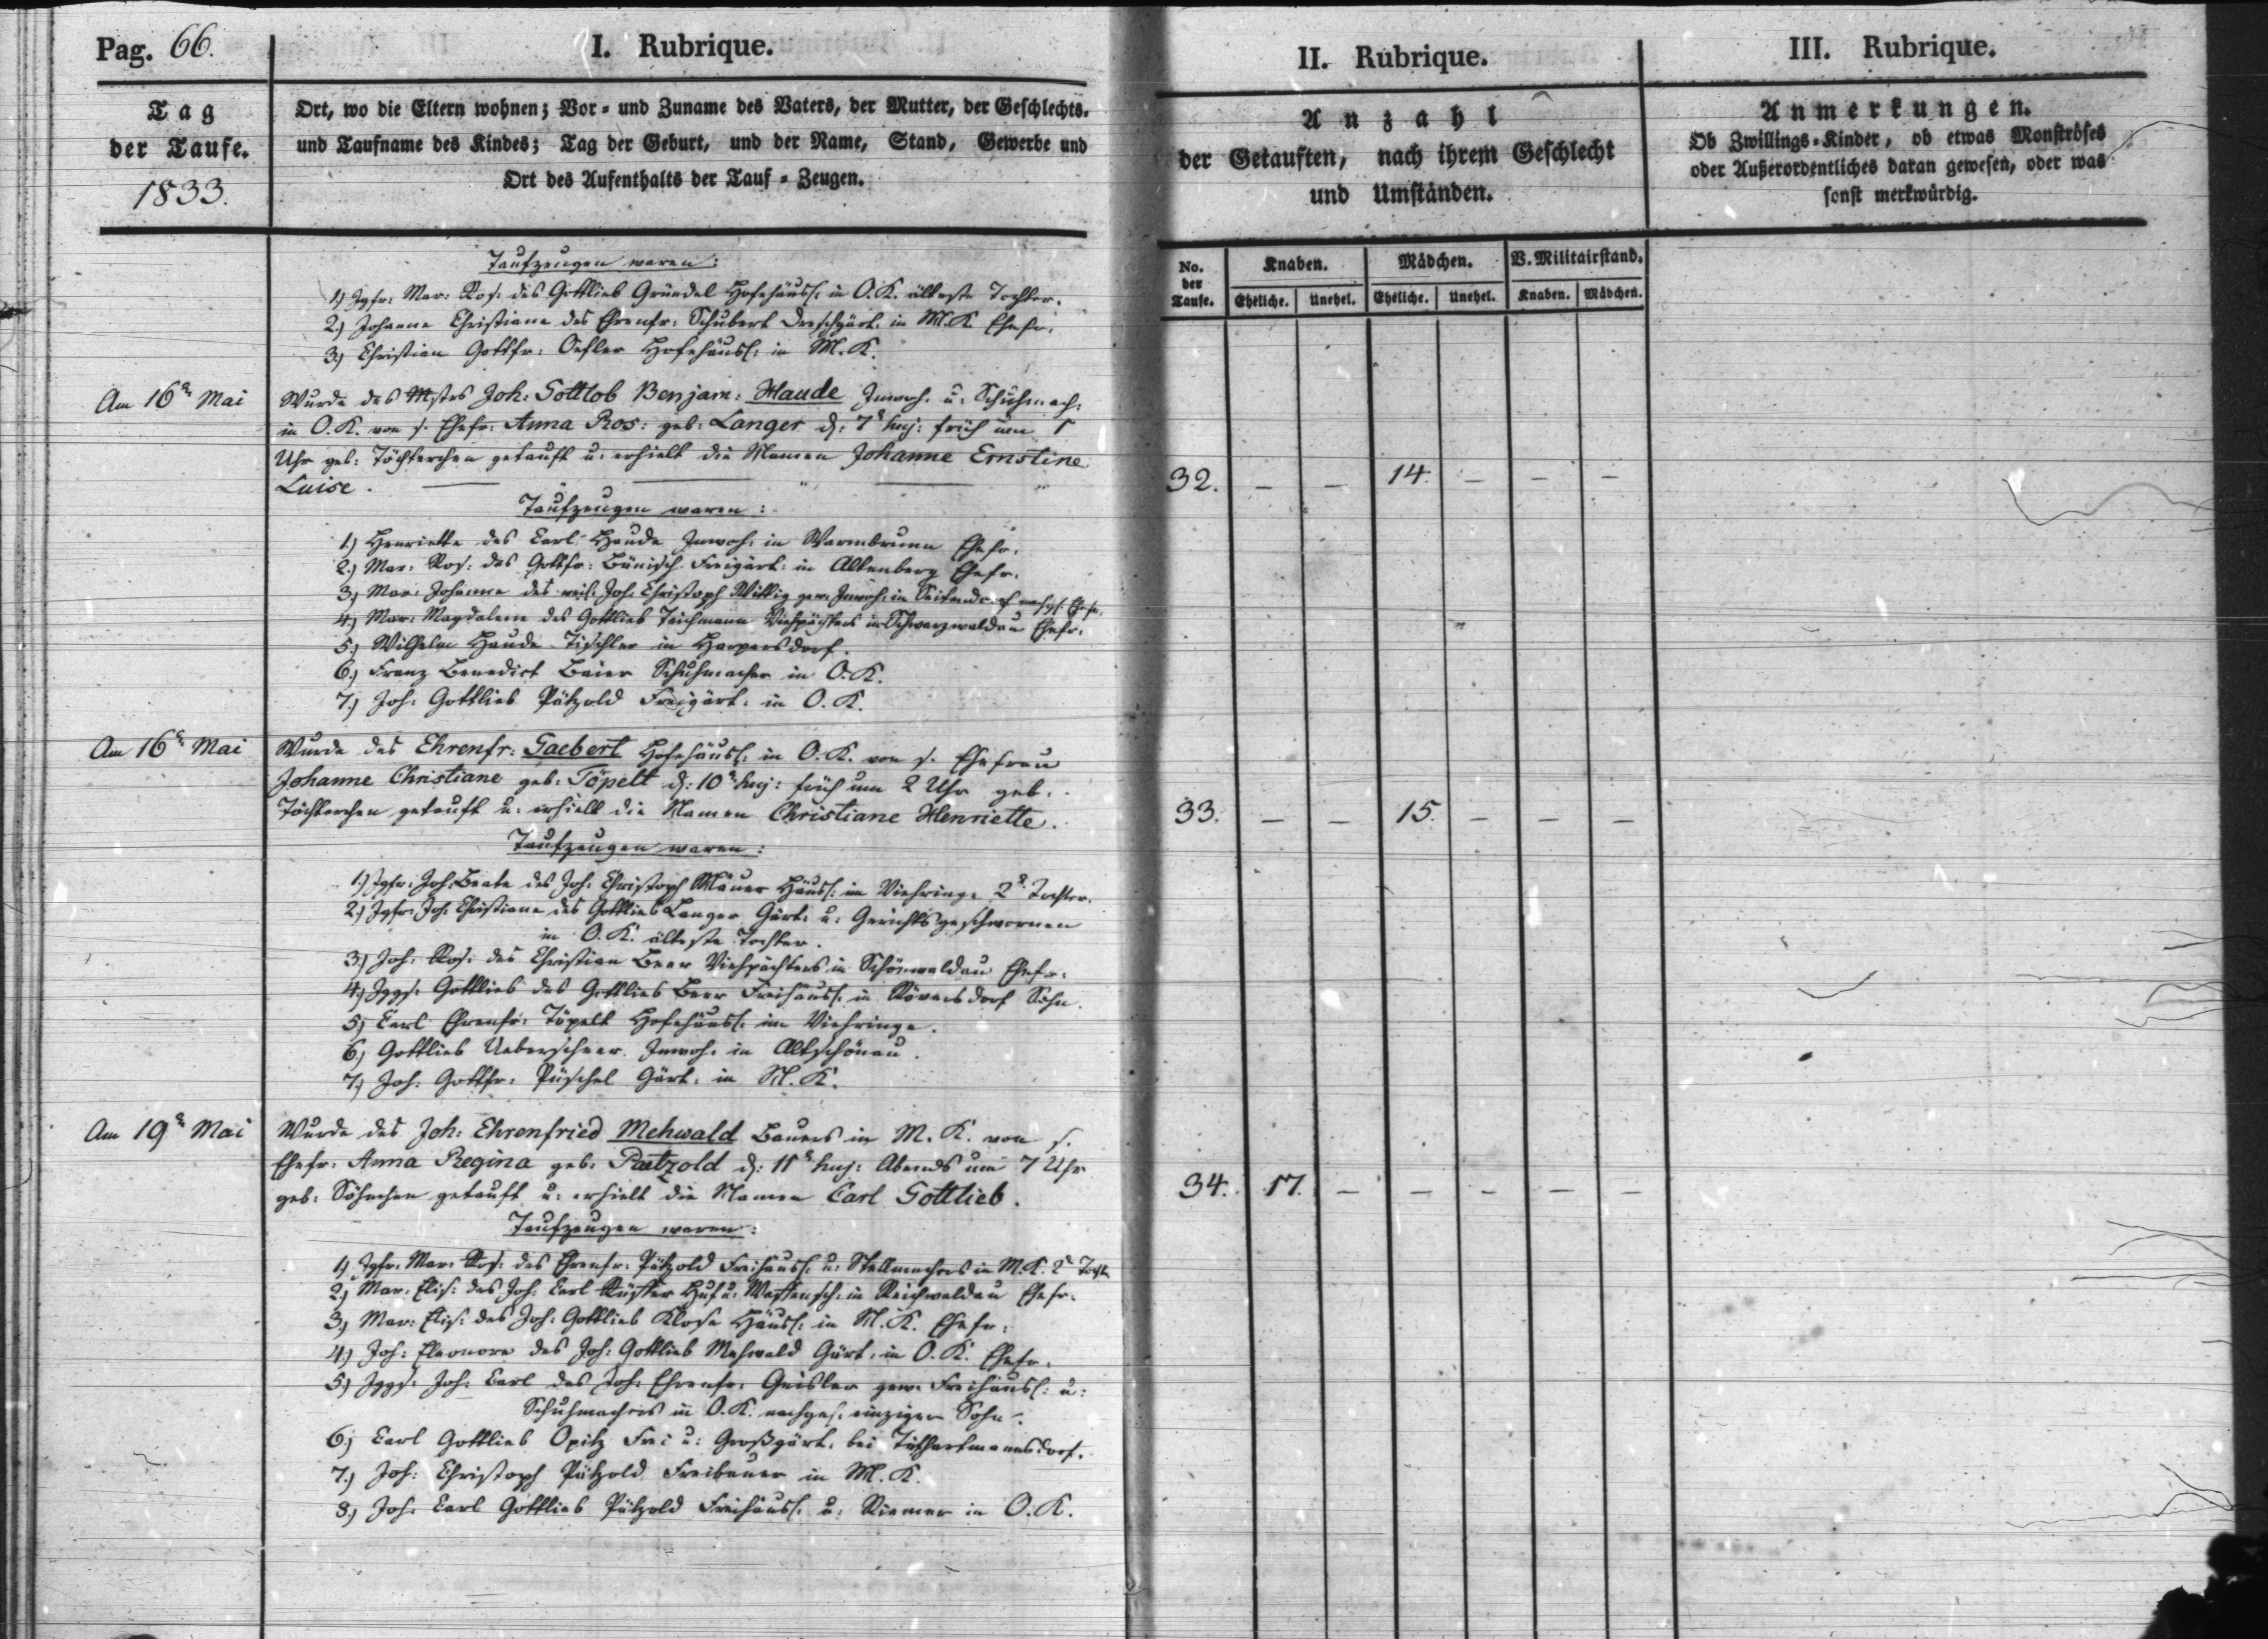 Pag. 66.
I. Rubrique.
Tag
der Taufe.
1833.
Ort, wo die Eltern wohnen; Vor- und Zuname des Vaters, der Mutter, der Geschlechts-
und Taufname des Kindes; Tag der Geburt, und der Name, Stand, Gewerbe und
Ort des Aufenthalts der Tauf-Zeugen.
Taufzeugen waren:
1.) Jgfr: Mar: Ros: des Gottlieb Gründel Hofehäusl: in O.K. älteste Tochter.
2.) Johanne Christiane des Ehrenfr: Schubert Dreschgärt: in M.K. Ehefr:
3.) Christian Gottfr: Hofehäusl: in M.K.
Am 16n Mai
Wurde des Mstrs Joh: Gottlob Benjam: Haude Inwoh: u: Schuhmach:
in O.K. von s. Ehefr: Anna Ros: geb: Langer d: 7n huj: früh um 1
Uhr geb: Töchterchen getauft u: erhielt die Namen Johanne Ernstine
Luise.
Taufzeugen waren:
1.) Henriette des Carl Haude Inwoh: in Warmbrunn Ehefr:
2.) Mar: Ros: des Gottfr: Bänisch Freigärt: in Altenberg Ehefr:
3.) Mar: Johanne des weil: Joh: Christoph Wittig gew: Inwoh: in Seitendorf nachgel: Ehefr:
4.) Mar: Magdalene des Gottlieb Teichmann Viehpächters in Schwarzwaldau Ehefr:
5.) Wilhelm Haude Tischler in Harpersdorf.
6.) Franz Benedict Baier Schuhmacher in O.K.
7.) Joh: Gottlieb Pätzold Freigärt: in O.K.
Am 16n Mai
Wurde des Ehrenfr: Gaebert Hofehäusl: in O.K. von s. Ehefrau
Johanne Christiane geb: Töpelt d: 10n huj: früh um 2 Uhr geb:
Töchterchen getauft u: erhielt die Namen Christiane Henriette.
Taufzeugen waren:
1.) Jgfr: Joh: Beate des Joh: Christoph Mäuer Häusl: im Viehringe 2n Tochter.
2.) Jgfr: Joh: Christiane des Gottlieb Langer Gärt: u: Gerichtsgeschwornen
in O.K. älteste Tochter.
3.) Joh: Ros: des Christian Beer Viehpächters in Schönwaldau Ehefr:
4.) Jggs: Gottlieb des Gottlieb Beer Freihäusl: in Röversdorf Sohn.
5.) Carl Ehrenfr: Töpelt Hofehäusl: im Viehringe.
6.) Gottlieb Ueberscheer Inwoh: in Altschönau.
7.) Joh: Gottfr: Püschel Gärt: in M.K.
Am 19n Mai
Wurde des Joh: Ehrenfried Mehwald Bauers in M.K. von s.
Ehefr: Anna Regina geb: Paetzold d: 11n huj: Abends um 7 Uhr
geb: Söhnchen getauft u: erhielt die Namen Carl Gottlieb.
Taufzeugen waren:
1.) Jgfr: Mar: Ros: des Ehrenfr: Pätzold Freihäusl: u: Stellmachers in M.K. 2n Tocht
2.) Mar: Elis: des Joh: Carl Küster Huf u: Waffensch: in Reichwaldau Ehefr:
3.) Mar: Elis: des Joh: Gottlieb Klose Häusl: in M.K. Ehefr:
4.) Joh: Eleonore des Joh: Gottlieb Mehwald Gärt: in O.K. Ehefr:
5.) Jggs: Joh: Carl des Joh: Ehrenfr: Geisler gew: Freihäusl: u:
Schuhmachers in O.K. nachgel: einziger Sohn.
6.) Carl Gottlieb Opitz Frei u: Großgärt: bei Tiefhartmannsdorf.
7.) Joh: Christoph Pätzold Freibauer in M.K.
8.) Joh: Carl Gottlieb Pätzold Freihäusl: u: Riemer in O.K.
II. Rubrique.
Anzahl
der Getauften, nach ihrem Geschlecht
und Umständen.
No. der Taufe.
Knaben.
Mädchen.
V. Militairstand.
Eheliche. Unehel. Eheliche. Unehel. Knaben. Mädchen.
32. — — 14. — — —
33. — — 15. — — —
34. 17. — — — — —
III. Rubrique.
Anmerkungen.
Ob Zwillings-Kinder, ob etwas Monströses
oder Außerordentliches daran gewesen, oder was
sonst merkwürdig.